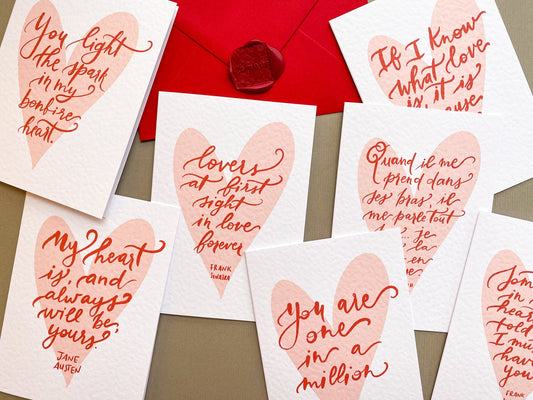 You light
the spark
in my
bonfire
heart.
If I Know
what love
is, it is
lovers
at first
sight
in love
forever
FRANK
SINATRA
Quand il me
prend dans
ses bras, il
me parle tout
je
la
en
My heart
is, and
always
will be,
yours.
JANE
AUSTEN
You are
one
in a
million
Som
in
hear
told
I mu
have
you
FRANK